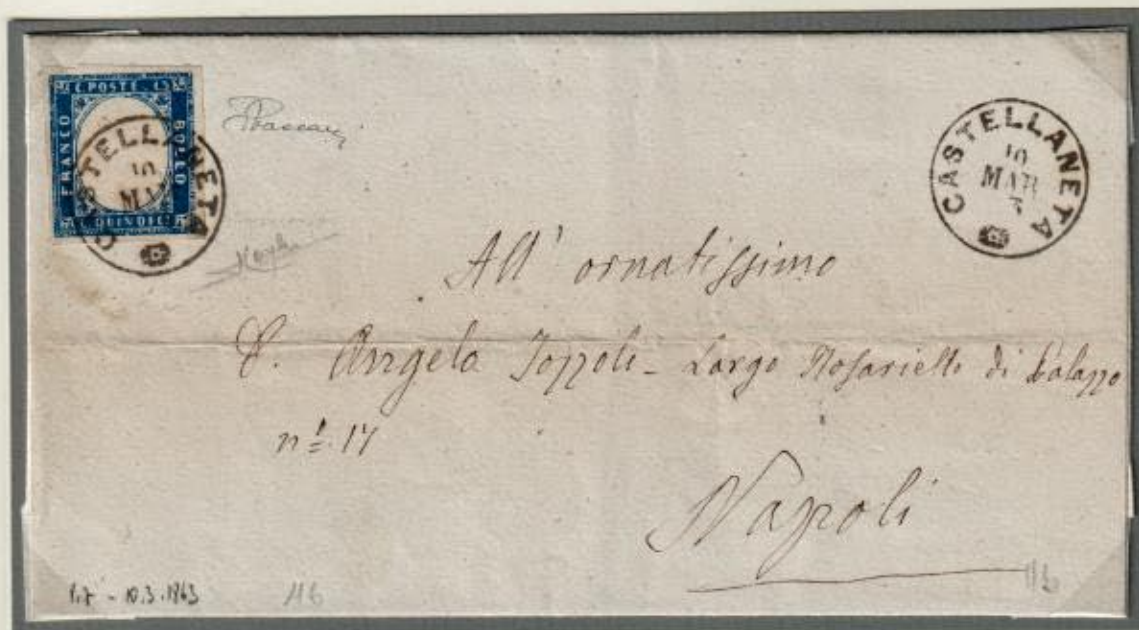 C. POSTE. 15
FRANCO
BOLLO
C. QUINDICI
CASTELLANETA
10
MA
CASTELLANETA
10
MAR
3
All' ornatissimo
D. Angelo Jozzoli - Largo Rosariello di Palazzo
n.° 17
Napoli
10.3.1863
116